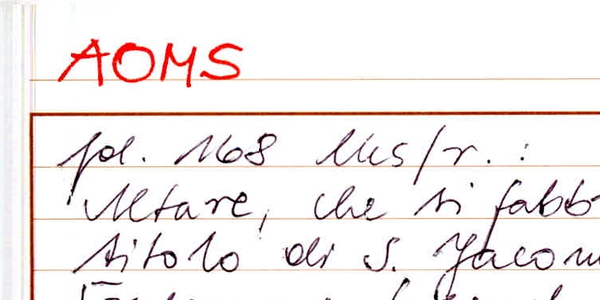 AOMS
fol. 168 lks/r. :
'Altare, che si fabb
titolo di S. Jacom